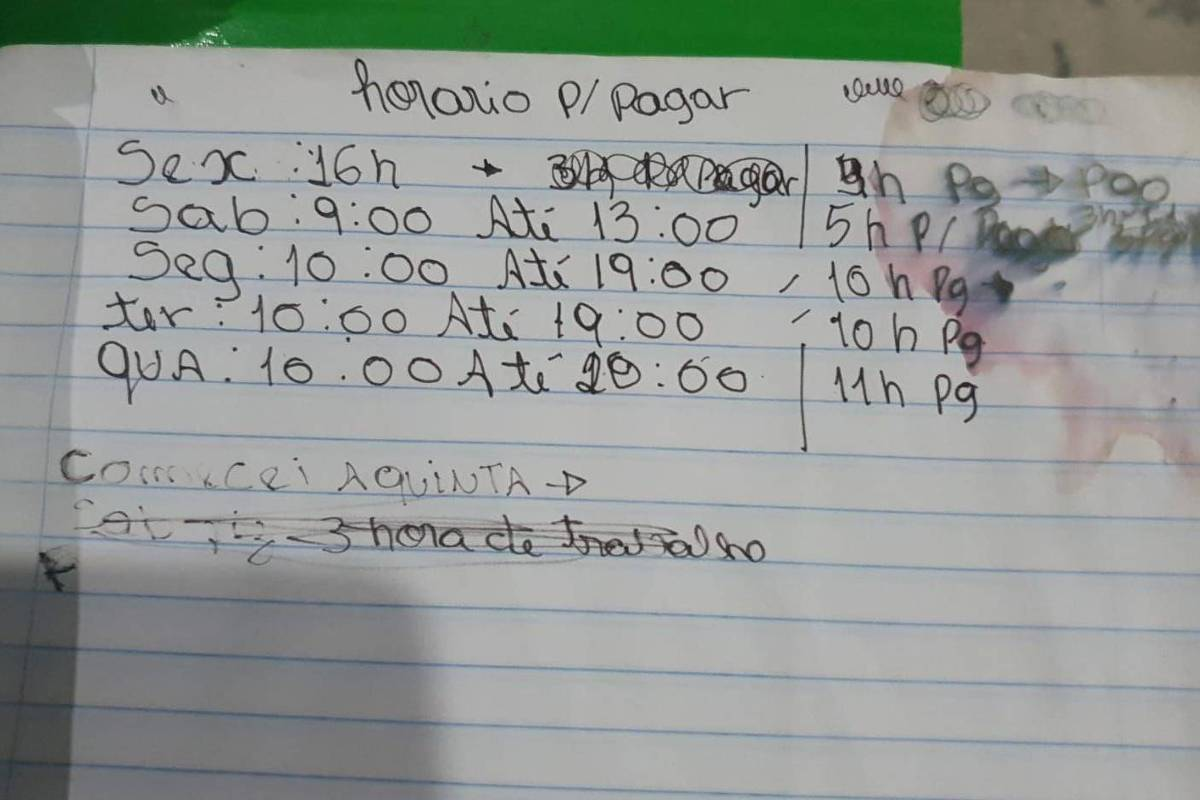 horario P/ Pagar
Sex : 16h → h Pg → Pgo
Sab : 9:00 Até 13:00 | 5h P/ Pagar
Seg : 10:00 Até 19:00 / 10h Pg →
ter : 10:00 Até 19:00 / 10h Pg
QUA : 10.00 Até 20:00 | 11h Pg
Comecei AQUINTA →
3 hora de trabalho